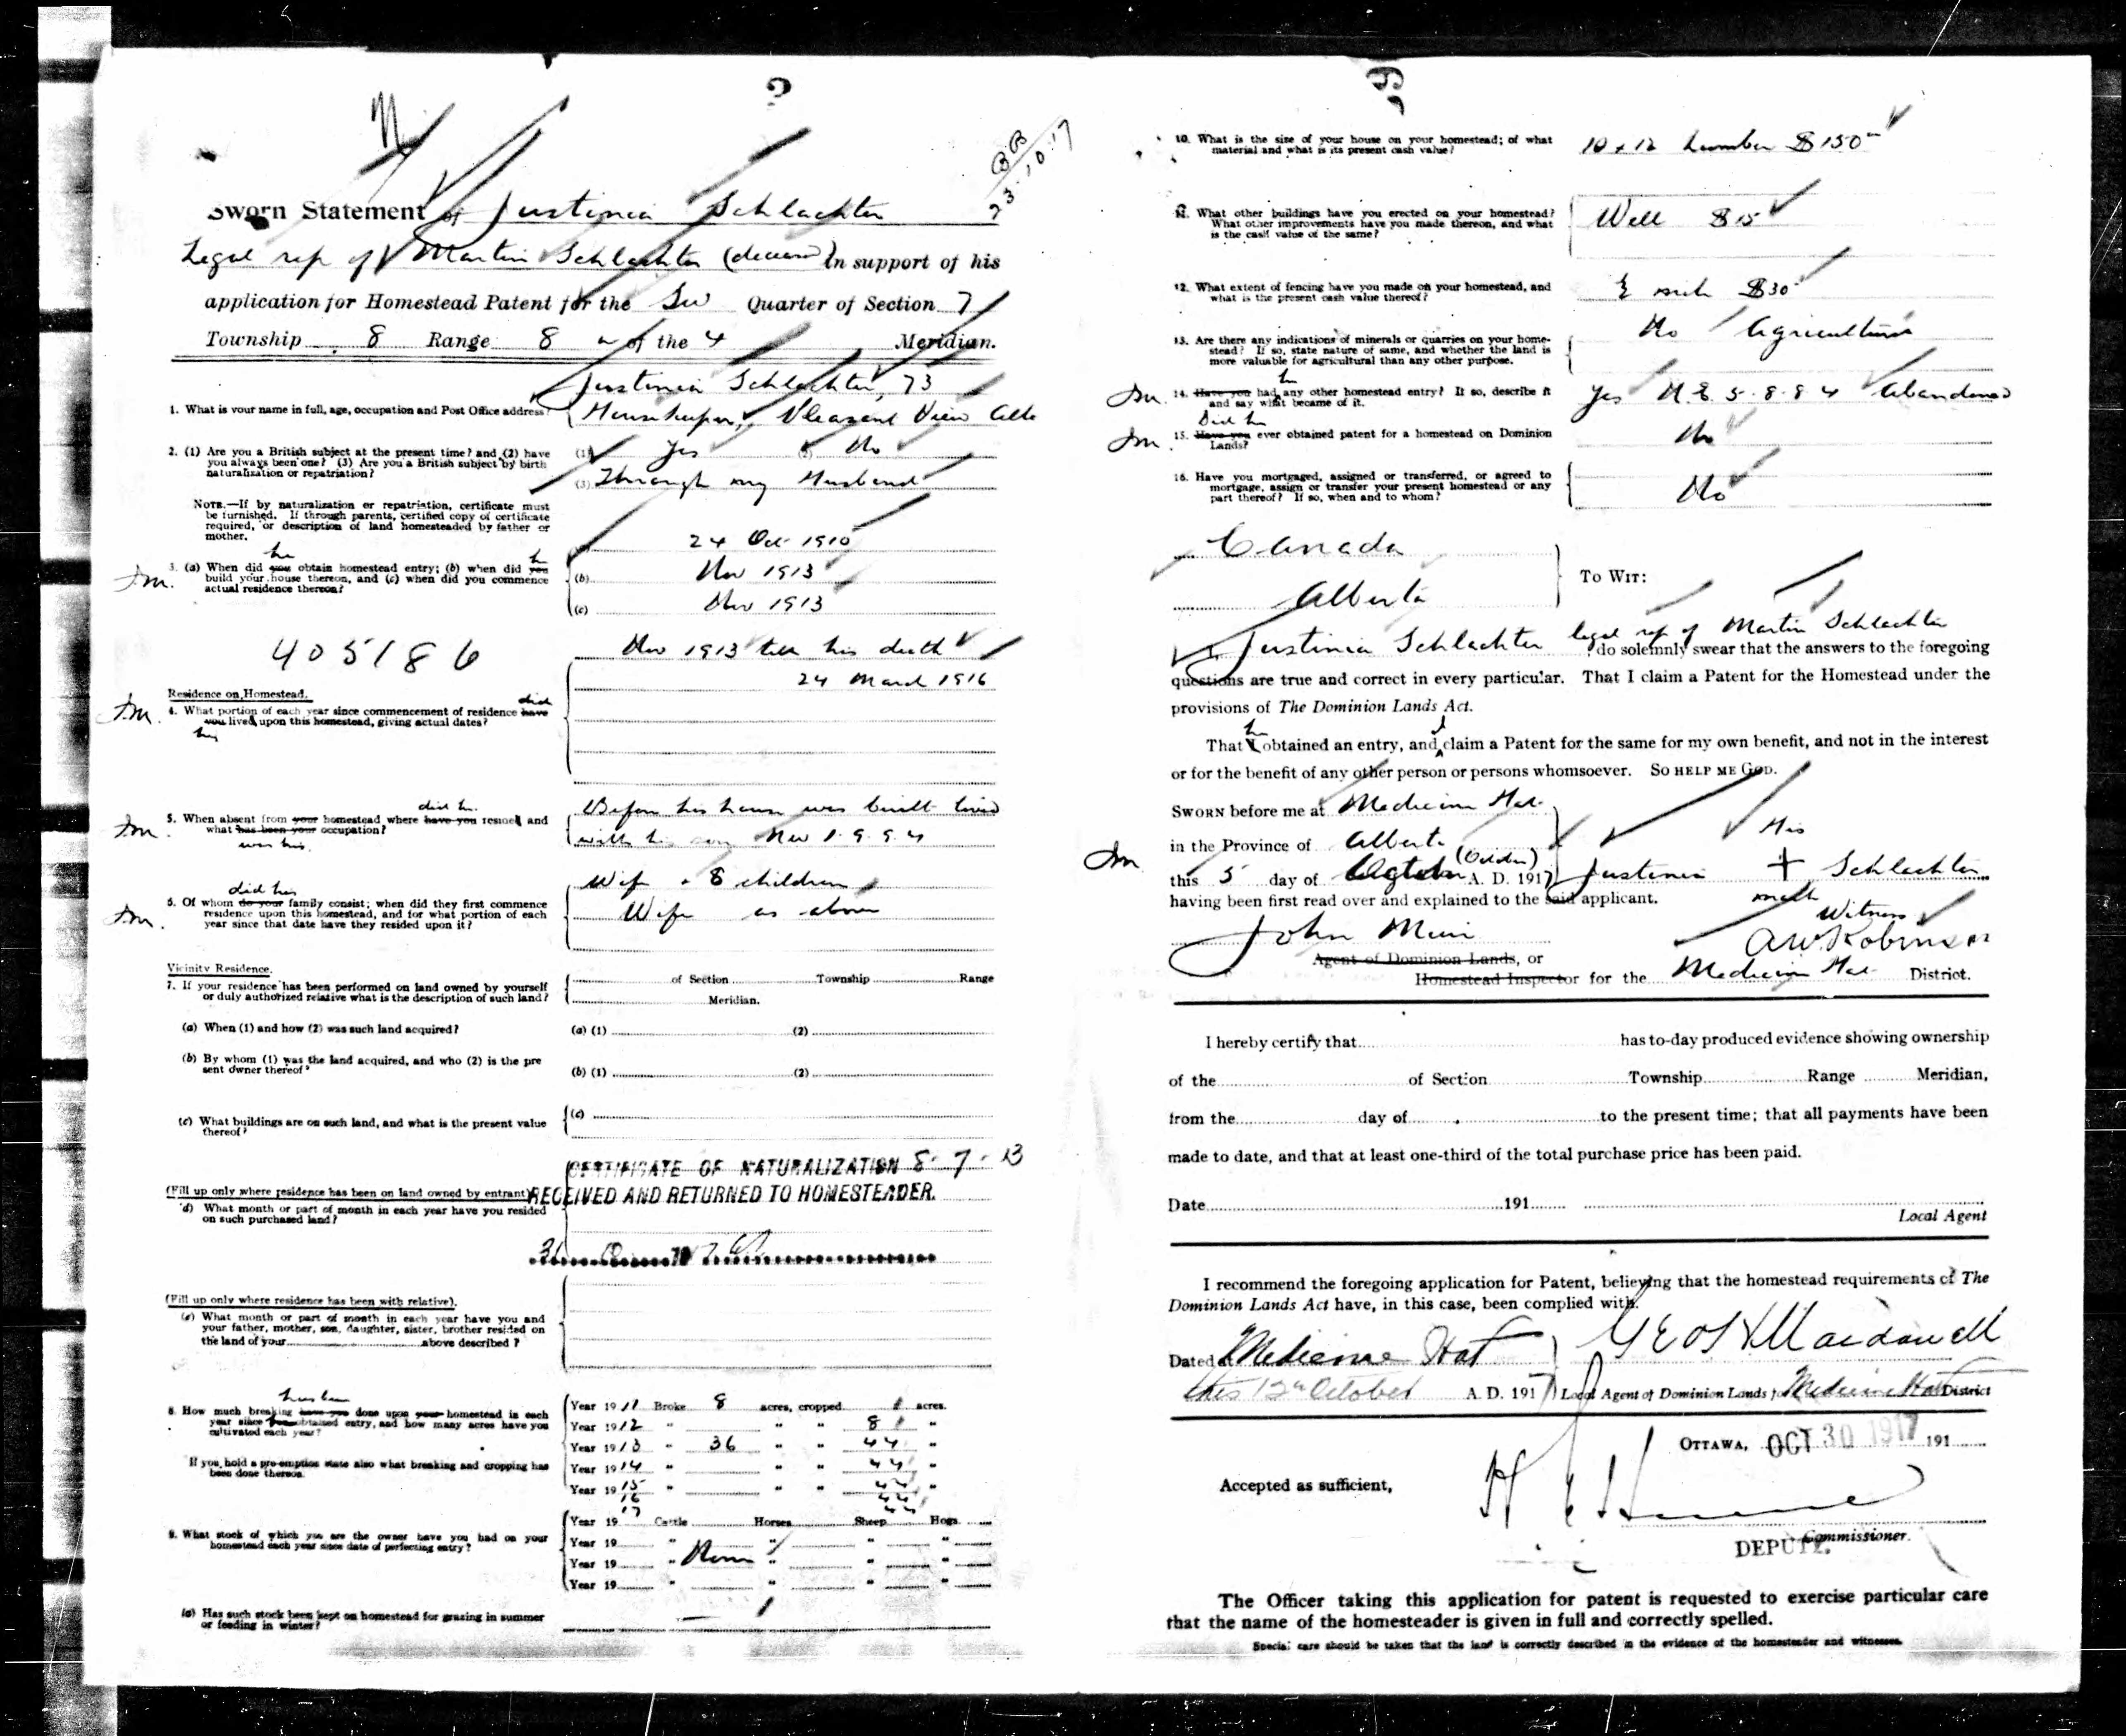 BB
23.10.17
Sworn Statement of Justinia Schlachter
Legal rep of Martin Schlachter (deceased) In support of his
application for Homestead Patent for the SW Quarter of Section 7
Township 8 Range 8 w of the 4 Meridian.
Justinia Schlachter, 73
1. What is your name in full, age, occupation and Post Office address?
Housekeeper, Pleasant View Alta
2. (1) Are you a British subject at the present time? and (2) have
you always been one? (3) Are you a British subject by birth
naturalization or repatriation?
(1) Yes (2) No
(3) Through my Husband
NOTE.—If by naturalization or repatriation, certificate must
be furnished. If through parents, certified copy of certificate
required, or description of land homesteaded by father or
mother.
he he
3. (a) When did you obtain homestead entry; (b) when did you
build your house thereon, and (c) when did you commence
actual residence thereon?
24 Oct 1910
(b) Nov 1913
(c) Nov 1913
Jm.
405186
Residence on Homestead.
did
4. What portion of each year since commencement of residence have
you lived upon this homestead, giving actual dates?
he
Nov 1913 till his death
24 March 1916
Jm.
did he
5. When absent from your homestead where have you resided and
what has been your occupation?
was his
Before his house was built lived
with his son
Jm.
did his
6. Of whom do your family consist; when did they first commence
residence upon this homestead, and for what portion of each
year since that date have they resided upon it?
Wife & 8 children
Wife as above
Jm.
Vicinity Residence.
7. If your residence has been performed on land owned by yourself
or duly authorized relative what is the description of such land?
of Section Township Range
Meridian.
(a) When (1) and how (2) was such land acquired?
(a) (1) (2)
(b) By whom (1) was the land acquired, and who (2) is the pre
sent owner thereof?
(b) (1) (2)
(c) What buildings are on such land, and what is the present value
thereof?
(c)
CERTIFICATE OF NATURALIZATION 8-7-13
RECEIVED AND RETURNED TO HOMESTEADER.
(Fill up only where residence has been on land owned by entrant)
(d) What month or part of month in each year have you resided
on such purchased land?
(Fill up only where residence has been with relative).
(e) What month or part of month in each year have you and
your father, mother, son, daughter, sister, brother resided on
the land of your above described?
has been
8. How much breaking have you done upon your homestead in each
year since you obtained entry, and how many acres have you
cultivated each year?
If you hold a pre-emption state also what breaking and cropping has
been done thereon.
Year 1911 Broke 8 acres, cropped acres.
Year 1912 " " " 8 "
Year 1913 " 36 " " 44 "
Year 1914 " " " 44 "
Year 1915 " " " 44 "
16 44
17 44
9. What stock of which you are the owner have you had on your
homestead each year since date of perfecting entry?
Year 19 Cattle Horses Sheep Hogs
Year 19 " " " "
Year 19 " None " " "
Year 19 " " " "
(a) Has such stock been kept on homestead for grazing in summer
or feeding in winter?
10. What is the size of your house on your homestead; of what
material and what is its present cash value?
10 x 12 Lumber $150
11. What other buildings have you erected on your homestead?
What other improvements have you made thereon, and what
is the cash value of the same?
Well $15
12. What extent of fencing have you made on your homestead, and
what is the present cash value thereof?
½ mile $30
13. Are there any indications of minerals or quarries on your home-
stead? If so, state nature of same, and whether the land is
more valuable for agricultural than any other purpose.
No Agricultural
he
14. Have you had any other homestead entry? If so, describe it
and say what became of it.
Yes N.E. 5-8-8-4 Abandoned
Jm.
Did he
15. Have you ever obtained patent for a homestead on Dominion
Lands?
No
Jm.
16. Have you mortgaged, assigned or transferred, or agreed to
mortgage, assign or transfer your present homestead or any
part thereof? If so, when and to whom?
No
Canada
Alberta
TO WIT:
I, Justinia Schlachter legal rep of Martin Schlachter
do solemnly swear that the answers to the foregoing
questions are true and correct in every particular. That I claim a Patent for the Homestead under the
provisions of The Dominion Lands Act.
he I
That I obtained an entry, and claim a Patent for the same for my own benefit, and not in the interest
or for the benefit of any other person or persons whomsoever. SO HELP ME GOD.
SWORN before me at Medicine Hat
in the Province of Alberta
(October)
this 5 day of October A. D. 1917
having been first read over and explained to the said applicant.
Jm
His
Justinia + Schlachter
mark
Witness
A W Robinson
John Muir
Agent of Dominion Lands, or
Homestead Inspector for the Medicine Hat District.
I hereby certify that has to-day produced evidence showing ownership
of the of Section Township Range Meridian,
from the day of to the present time; that all payments have been
made to date, and that at least one-third of the total purchase price has been paid.
Date 191
Local Agent
I recommend the foregoing application for Patent, believing that the homestead requirements of The
Dominion Lands Act have, in this case, been complied with.
Dated at Medicine Hat
this 12th October A. D. 1917
Local Agent of Dominion Lands for Medicine Hat District
OTTAWA, OCT 30 1917 191
Accepted as sufficient,
DEPUTY Commissioner.
The Officer taking this application for patent is requested to exercise particular care
that the name of the homesteader is given in full and correctly spelled.
Special care should be taken that the land is correctly described in the evidence of the homesteader and witnesses.